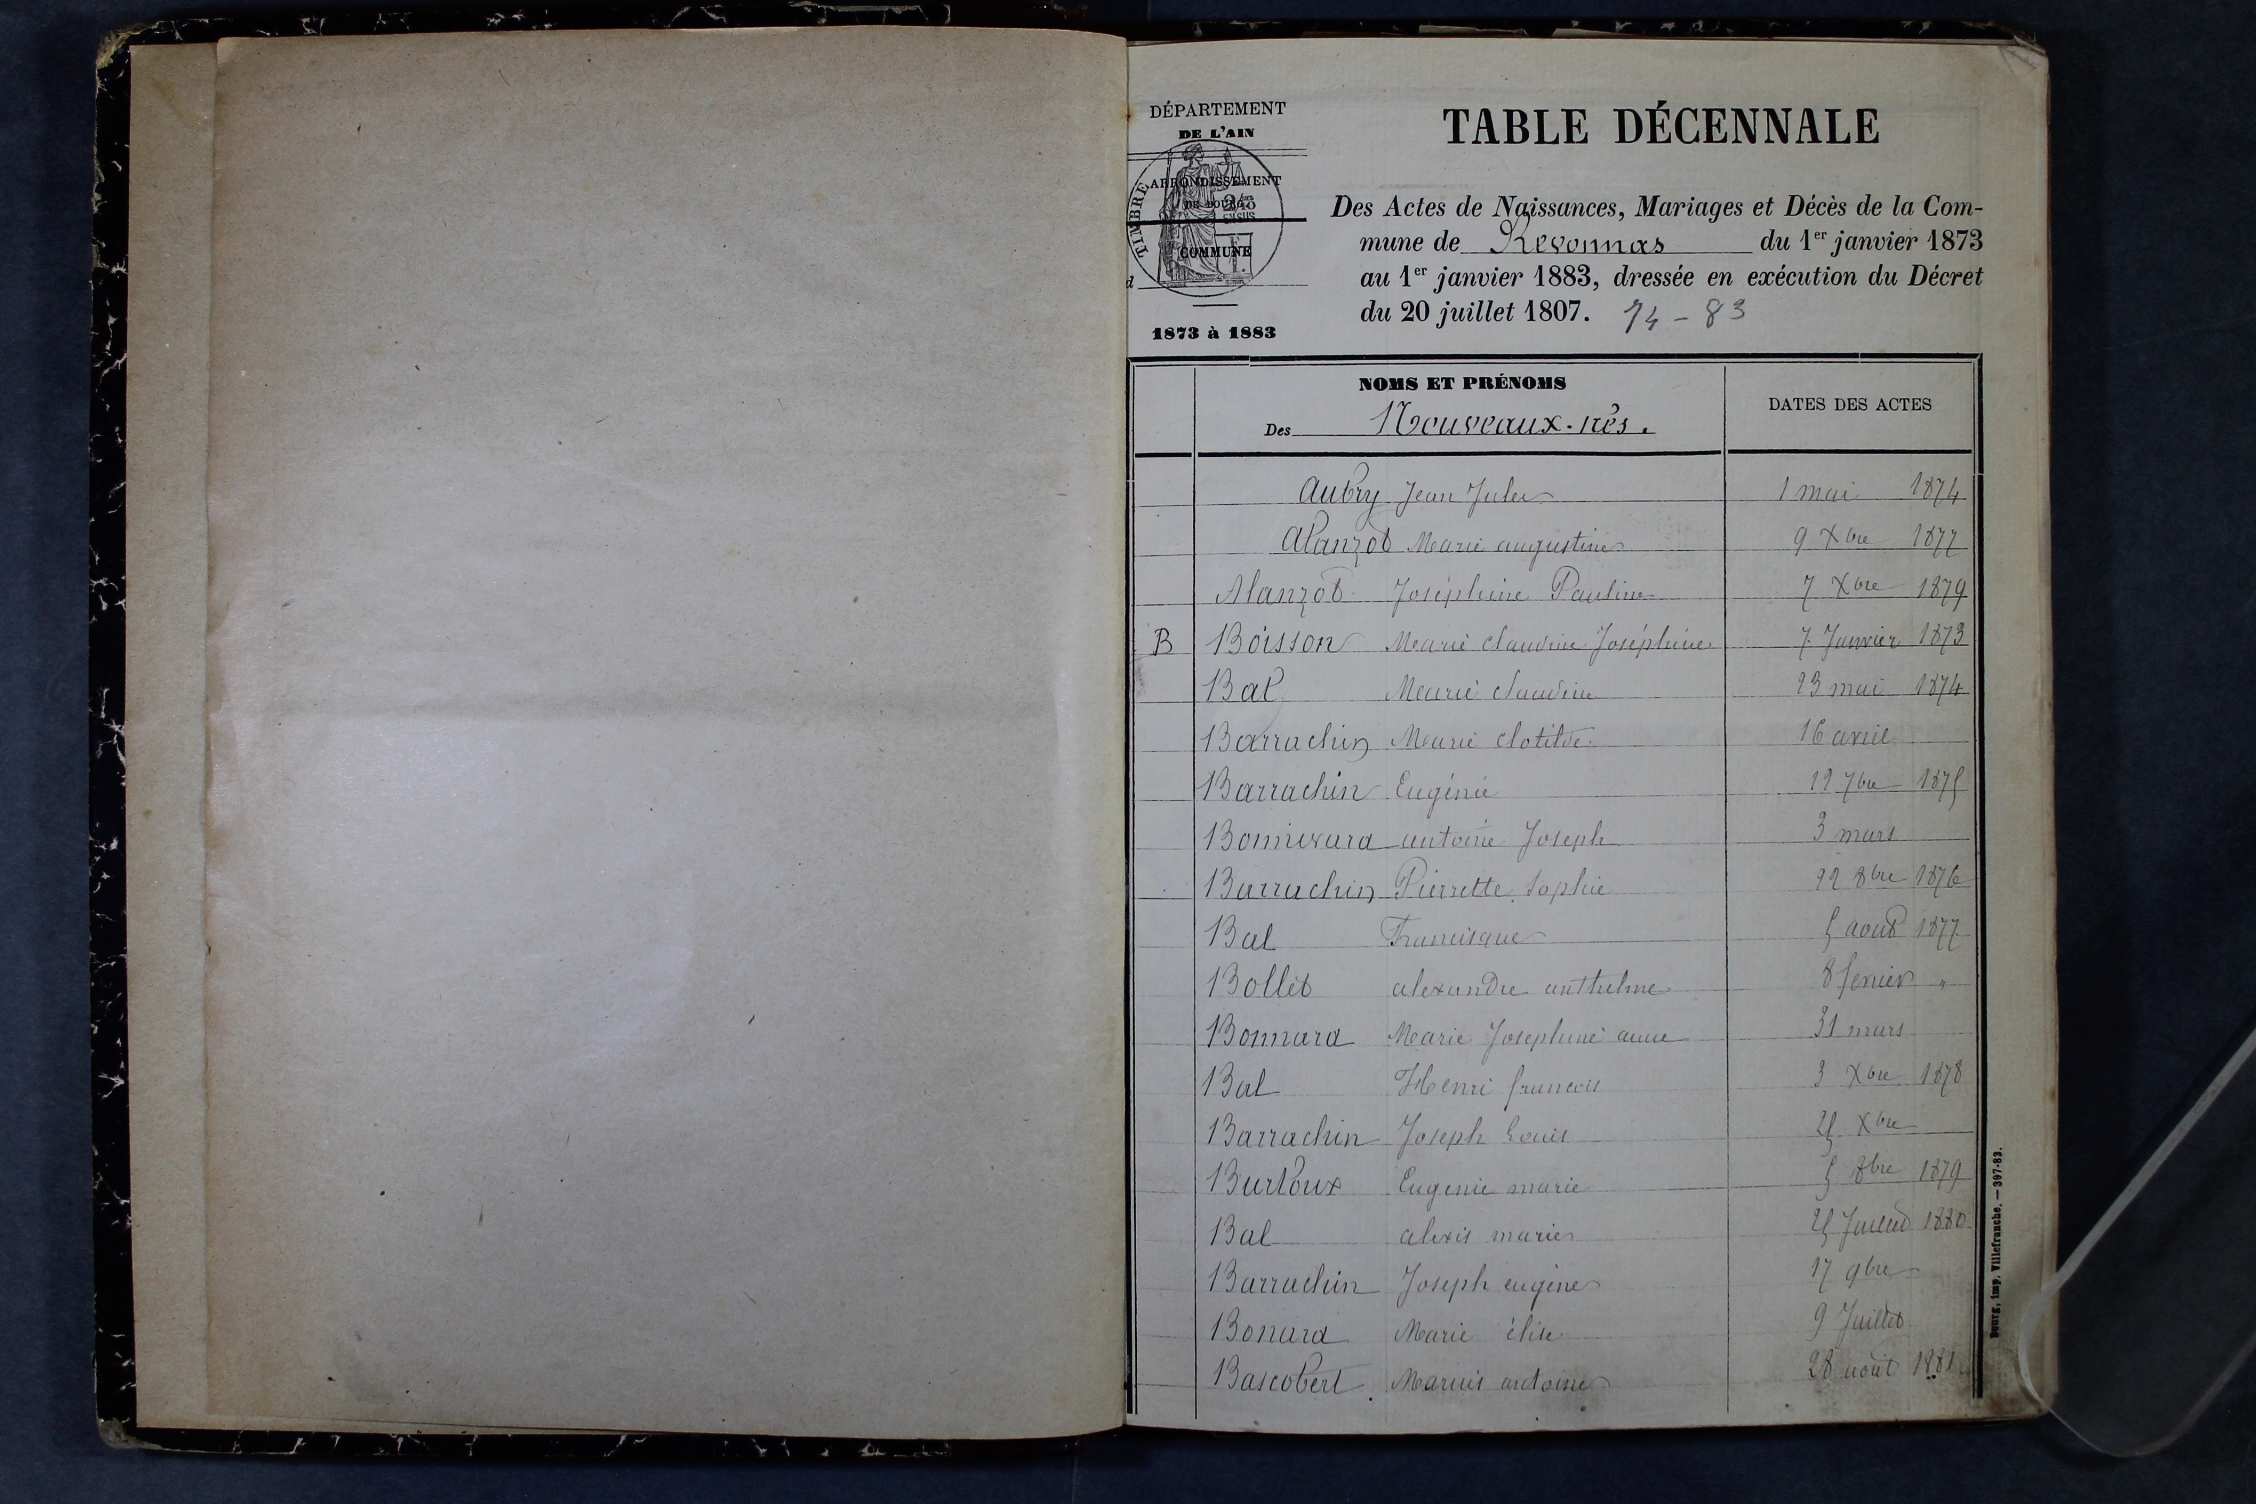 DÉPARTEMENT
DE L'AIN
ARRONDISSEMENT
DE BOURG
TIMBRE
COMMUNE
d
1873 à 1883
TABLE DÉCENNALE
Des Actes de Naissances, Mariages et Décès de la Com-
mune de Revonnas du 1er janvier 1873
au 1er janvier 1883, dressée en exécution du Décret
du 20 juillet 1807. 74 - 83
NOMS ET PRÉNOMS
Des Nouveaux-nés.
DATES DES ACTES
Aubry Jean Jules 1 mai 1874
Alanzot Marie augustine 9 Xbre 1877
Alanzot Joséphine Pauline 7 Xbre 1879
B Boisson Marie claudine Joséphine 7 Janvier 1873
Bal Marie claudine 23 mai 1874
Barrachin Marie clotilde 16 avril
Barrachin Eugénie 12 7bre 1875
Bonnevard antoine Joseph 3 mars
Barrachin Pierrette Sophie 22 8bre 1876
Bal Francisque 5 aout 1877
Bollet alexandre anthelme 8 fevrier "
Bonnard Marie Josephine anne 31 mars
Bal Henri francois 3 Xbre 1878
Barrachin Joseph Louis 25 Xbre
Burtoux Eugenie marie 5 8bre 1879
Bal alexis marie 25 Juillet 1880
Barrachin Joseph eugène 17 9bre
Bonard Marie élise 9 Juillet
Bascobert Marius antoine 28 août 1881
Bourg, imp. Villefranche. — 397-83.